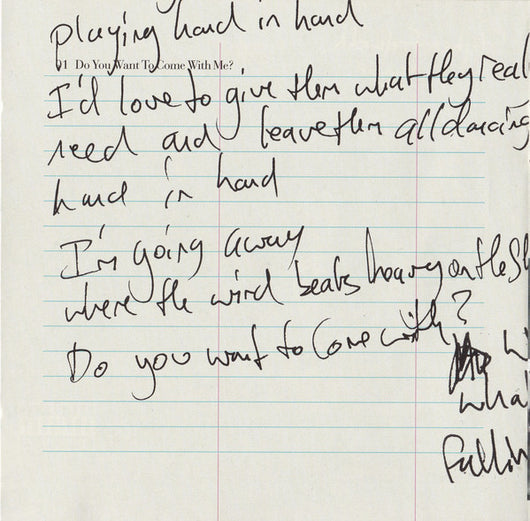 playing hand in hand
01 Do You Want To Come With Me?
I'd love to give them what they real
need and leave them all dancing
hand in hand
I'm going away
where the wind beats heavy on the Sh
Do you want to Come with?
w
wha
fallin